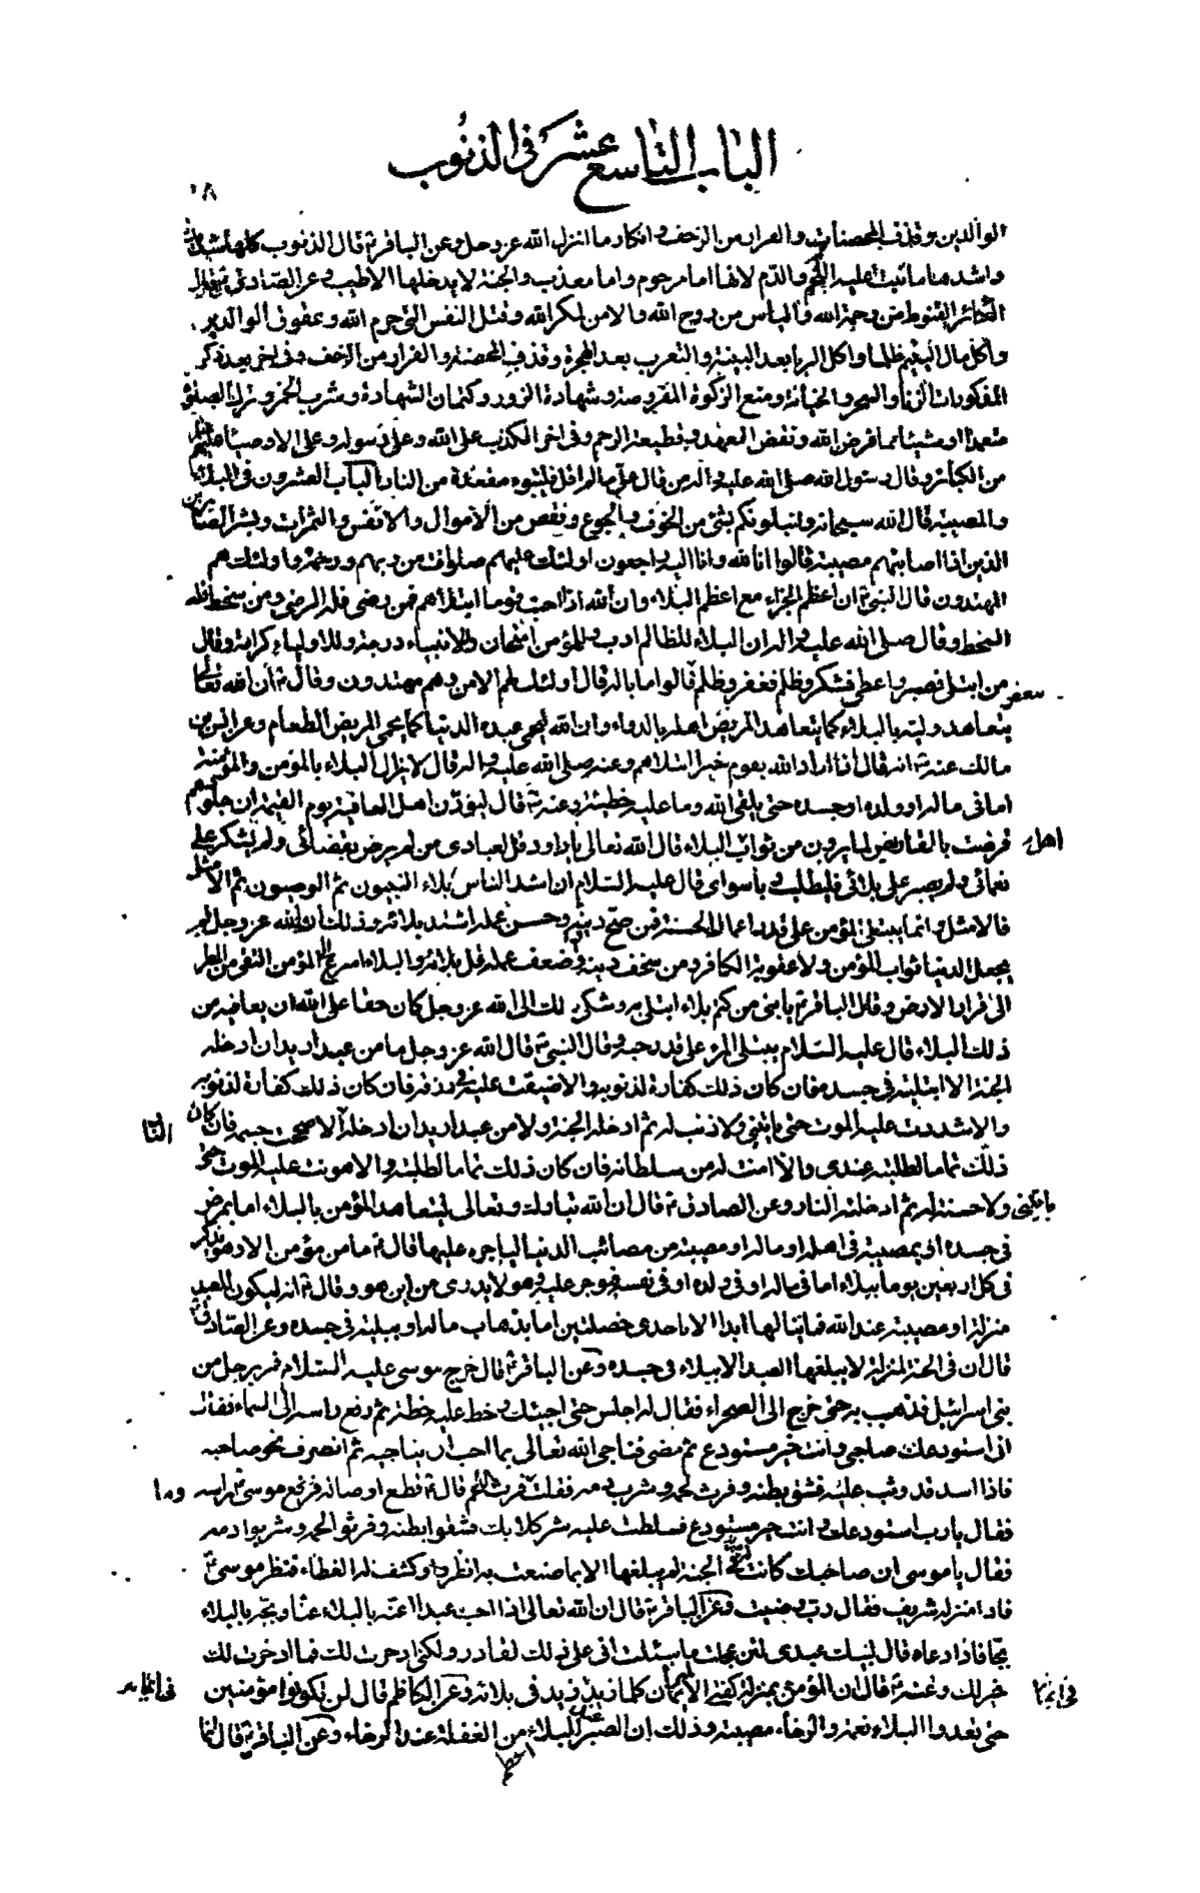 الباب التاسع عشر في الذنوب
١٨
الوالدين وقذف المحصنات والفرار من الزحف وانكار ما انزل الله عز وجل وعن الباقر ع قال الذنوب كلها شديدة
واشدها ما نبت عليه اللحم والدم لانها اما مرحوم واما معذب والجنة لا يدخلها الا طيب وعن الصادق ع قال
الكبائر القنوط من رحمة الله والياس من روح الله والامن لمكر الله وقتل النفس التي حرم الله وعقوق الوالدين
واكل مال اليتيم ظلما واكل الربا بعد البينة والتعرب بعد الهجرة وقذف المحصنة والفرار من الزحف وفي اخر بعد ذكر
المذكورات الزنا والسحر والخيانة ومنع الزكوة المفروضة وشهادة الزور وكتمان الشهادة وشرب الخمر وترك الصلوة
متعمدا او شيئا مما فرض الله ونقض العهد وقطيعة الرحم وفي اخر الكذب على الله وعلى رسوله وعلى الاوصياء عليهم
من الكبائر وقال رسول الله صلى الله عليه واله من قال علي ما لم اقل فليتبوء مقعده من النار الباب العشرون في البلاء
والمصيبة قال الله سبحانه ولنبلونكم بشئ من الخوف والجوع ونقص من الاموال والانفس والثمرات وبشر الصابرين
الذين اذا اصابتهم مصيبة قالوا انا لله وانا اليه راجعون اولئك عليهم صلوات من ربهم ورحمة واولئك هم
المهتدون قال النبي ص ان اعظم الجزاء مع اعظم البلاء وان الله اذا احب قوما ابتلاهم فمن رضي فله الرضى ومن سخط فله
السخط وقال صلى الله عليه واله ان البلاء للظالم ادب وللمؤمن امتحان وللانبياء درجة وللاولياء كرامة وقال
من ابتلي فصبر واعطي فشكر وظلم فغفر وظلم فاستغفر قالوا ما باله قال اولئك لهم الامن وهم مهتدون وقال ص ان الله تعالى
يتعاهد وليه بالبلاء كما يتعاهد المريض اهله بالدواء وان الله ليحمي عبده الدنيا كما يحمي المريض الطعام وعن انس بن
مالك عنه ص انه قال اذا اراد الله بقوم خيرا ابتلاهم وعنه صلى الله عليه واله قال لا يزال البلاء بالمؤمن والمؤمنة
اما في ماله او ولده او جسده حتى يلقى الله وما عليه خطيئة وعنه ص قال ليودن اهل العافية يوم القيمة ان جلودهم
قرضت بالمقاريض لما يرون من ثواب اهل البلاء قال الله تعالى يا داود قل لعبادي من لم يرض بقضائي ولم يشكر على
نعمائي ولم يصبر على بلائي فليطلب ربا سوائي قال عليه السلام ان اشد الناس بلاء النبيون ثم الوصيون ثم الامثل
فالامثل وانما يبتلى المؤمن على قدر اعماله الحسنة فمن صح دينه وحسن عمله اشتد بلائه وذلك ان الله عز وجل لم
يجعل الدنيا ثواب المؤمن ولا عقوبة الكافر ومن سخف دينه وضعف عمله قل بلائه والبلاء اسرع الى المؤمن التقي من المطر
الى قرار الارض وقال الباقر ع يا بني من كتم بلاء ابتلي به وشكى ذلك الى الله عز وجل كان حقا على الله ان يعافيه من
ذلك البلاء قال عليه السلام يبتلى المرء على قدر حبه وقال النبي ص قال الله عز وجل ما من عبد اريد ان ادخله
الجنة الا ابتليته في جسده فان كان ذلك كفارة لذنوبه والا ضيقت عليه في رزقه فان كان ذلك كفارة لذنوبه
والا شددت عليه الموت حتى ياتيني ولا ذنب له ثم ادخله الجنة ولا من عبد اريد ان ادخله النار الا صححت جسمه فان كان
ذلك تماما لطلبته عندي والا امنت له من سلطانه فان كان ذلك تماما لطلبته والا هونت عليه الموت حتى
ياتيني ولا حسنة له ثم ادخلته النار وعن الصادق ع قال ان الله تبارك وتعالى ليتعاهد المؤمن بالبلاء اما بمرض
في جسده او بمصيبة في اهله او ماله او مصيبة من مصائب الدنيا لياجره عليها قال ع ما من مؤمن الا وهو يذكر
في كل اربعين يوما ببلاء اما في ماله او في ولده او في نفسه فيوجر عليه وهو لا يدري من اين هو وقال ع انه ليكون للعبد
منزلة او مصيبة عند الله فما ينالها ابدا الا باحدى خصلتين اما بذهاب ماله او ببلية في جسده وعن الصادق ع
قال ان في الجنة لمنزلة لا يبلغها العبد الا ببلاء في جسده وعن الباقر ع قال خرج موسى عليه السلام فمر برجل من
بني اسرائيل فذهب به حتى خرج الى الصحراء فقال له اجلس حتى اجيئك وخط عليه خطة ثم رفع راسه الى السماء فقال
اني استودعك صاحبي وانت خير مستودع ثم مضى فناجى الله تعالى بما احب ان يناجيه ثم انصرف نحو صاحبه
فاذا اسد قد وثب عليه فشق بطنه وفرث لحمه وشرب دمه فقلت وما فرث اللحم قال ع قطع اوصاله فرفع موسى ع راسه
فقال يا رب استودعتك وانت خير مستودع فسلطت عليه شر كلابك فشق بطنه وفرث لحمه وشرب دمه
فقال يا موسى ان صاحبك كانت له منزلة في الجنة لم يبلغها الا بما صنعت به انظر وكشف له الغطاء فنظر موسى ع
فاذا منزله شريف فقال رب رضيت وعن الباقر ع قال ان الله تعالى اذا احب عبدا غته بالبلاء غتا وثجه بالبلاء
ثجا فاذا دعاه قال لبيك عبدي لئن عجلت ما سئلت اني على ذلك لقادر ولكن ادخرت لك فما ادخرت لك
خير لك وعنه ع قال ان المؤمن بمنزلة كفة الميزان كلما زيد في ايمانه زيد في بلائه وعن الكاظم قال لن تكونوا مؤمنين
حتى تعدوا البلاء نعمة والرخاء مصيبة وذلك ان الصبر عند البلاء اعظم من الغفلة عند الرخاء وعن الباقر ع قال انما